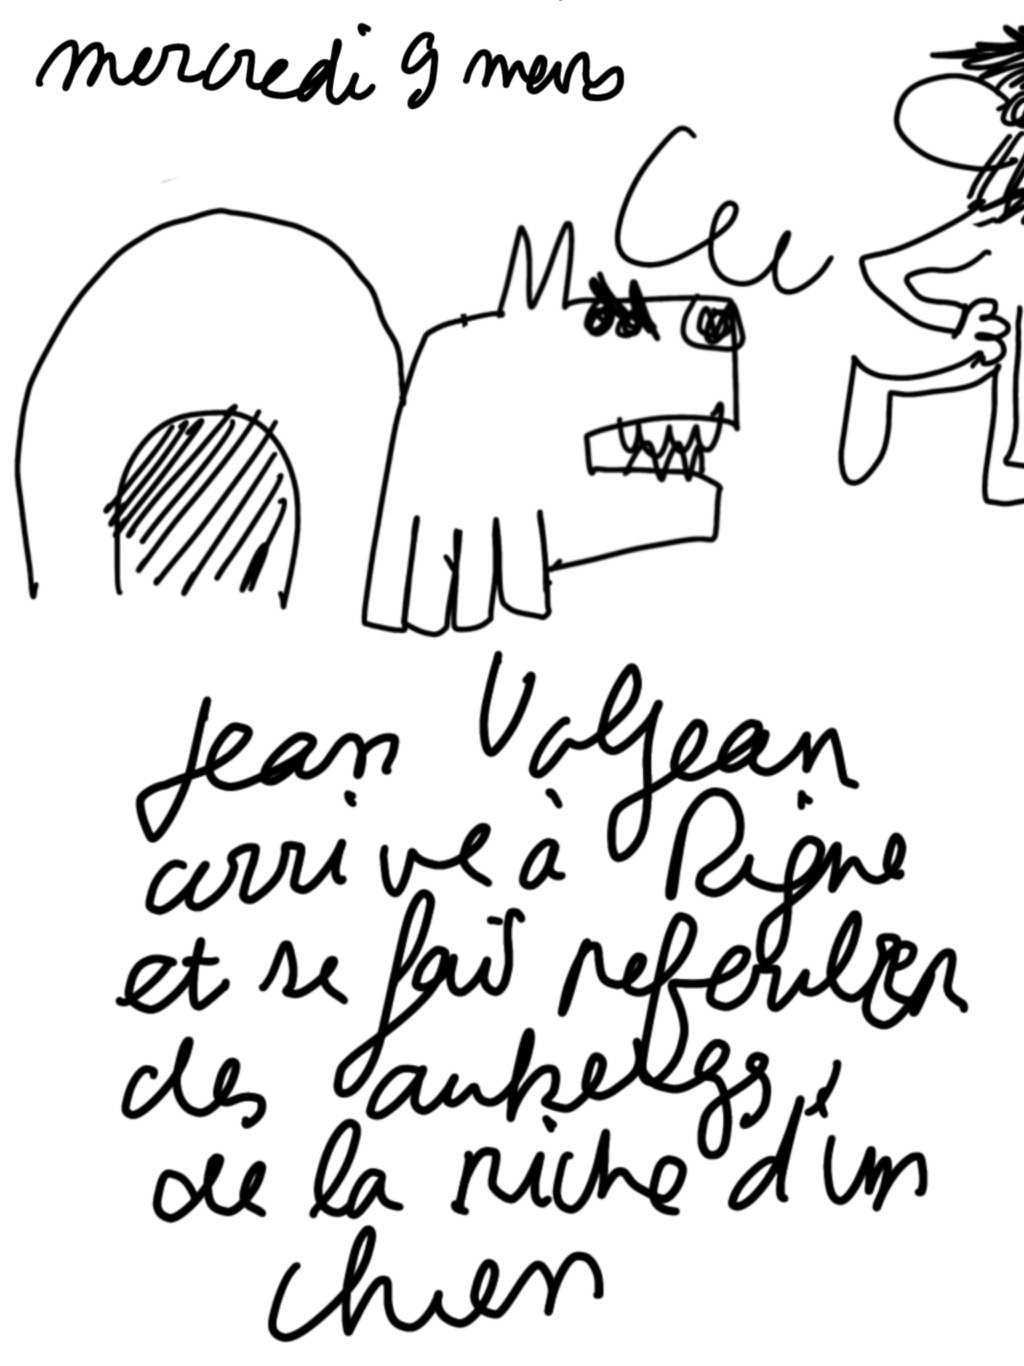 mercredi 9 mars
Jean Valjean
arrive à Digne
et se fait refouler
des auberges,
de la niche d'un
chien